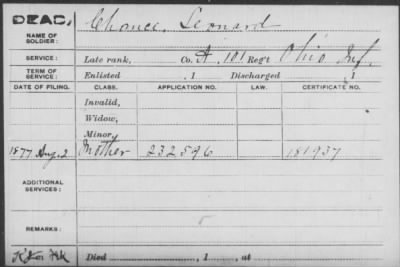 DEAD, Chance, Leonard
NAME OF SOLDIER:
SERVICE: Late rank, Co. A, 101 Reg't Ohio Inf.
TERM OF SERVICE: Enlisted , 1 Discharged , 1
DATE OF FILING. CLASS. APPLICATION NO. LAW. CERTIFICATE NO.
Invalid,
Widow,
Minor,
1877 Aug. 2 Mother 232596 181937
ADDITIONAL SERVICES:
REMARKS:
Died , 1 , at